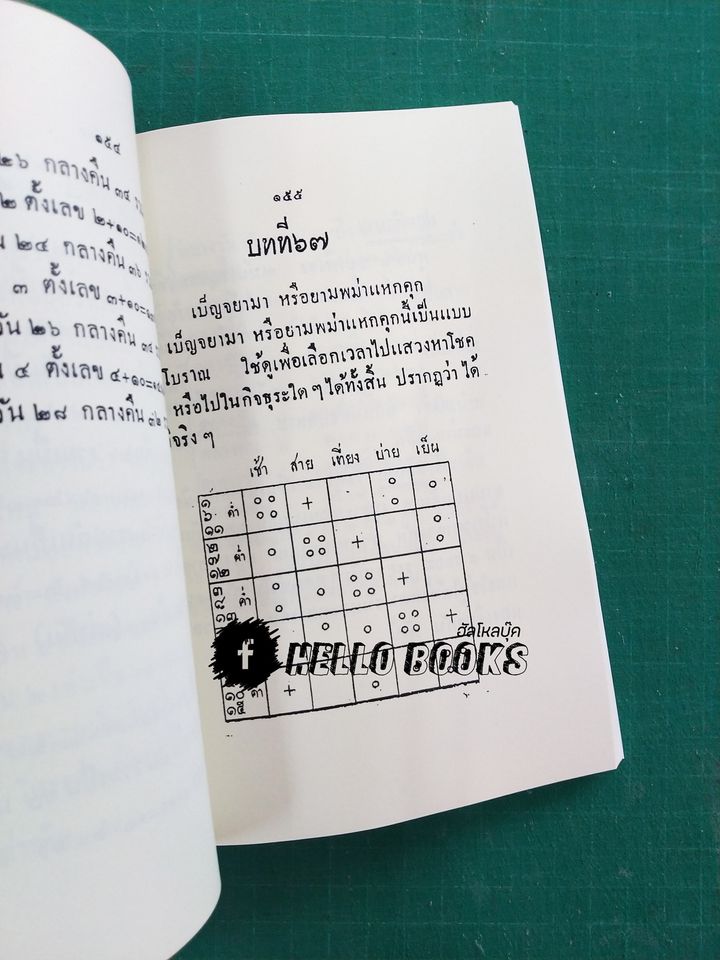 ๑๕๔
๒๖ กลางคืน ๓๔
๒ ตั้งเลข ๒+๑๐=๑๒
๒๔ กลางคืน ๓๖
๓ ตั้งเลข ๓+๑๐=
วัน ๒๖ กลางคืน ๓๔
๔ ตั้งเลข ๔+๑๐=๑๔
วัน ๒๘ กลางคืน ๓๒
๑๕๕
บทที่๖๗
เบ็ญจยามา หรือยามพม่าแหกคุก
เบ็ญจยามา หรือยามพม่าแหกคุกนี้เป็นแบบ
โบราณ ใช้ดูเพื่อเลือกเวลาไปแสวงหาโชค
หรือไปในกิจธุระใด ๆ ได้ทั้งสิ้น ปรากฏว่าได้
จริง ๆ
เช้า สาย เที่ยง บ่าย เย็น
ค่ำ +
ค่ำ +
ค่ำ +
+
ฮัลโหลบุ๊ค
f HELLO BOOKS
ค่ำ +